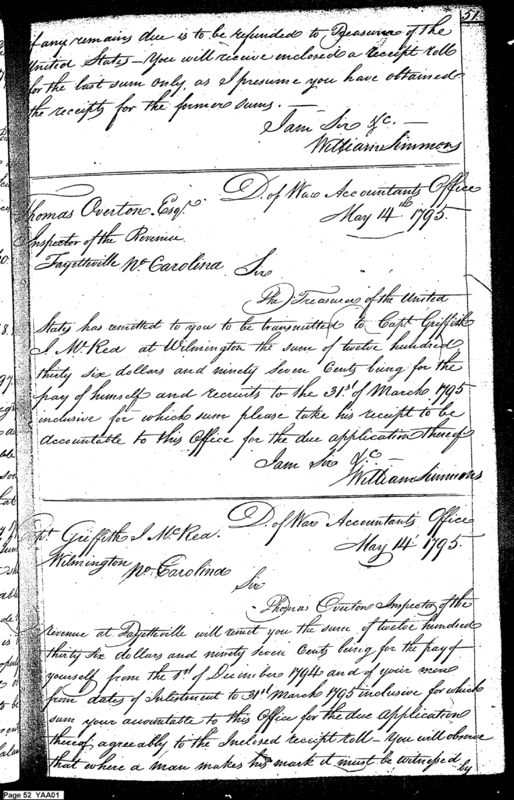 51
if any remains due is to be refunded to Treasurer of the
United States – You will receive enclosed a receipt roll
for the last sum only, as I presume you have obtained
the receipts for the former sums. –
I am Sir &c. –
William Simmons
D. of War Accountants Office
May 14th 1795.
Thomas Overton Esqr.
Inspector of the Revenue
Fayettville No. Carolina
Sir
The Treasurer of the United
States has remitted to you to be transmitted to Capt. Griffith
I McRea at Wilmington the sum of twelve hundred
thirty six dollars and ninety seven Cents being for the
pay of himself and recruits to the 31st of March 1795
inclusive for which sum please take his receipt to be
accountable to this Office for the due application thereof
I am Sir &c
William Simmons
D. of War Accountants Office
May 14 1795.
Capt. Griffith I McRea.
Wilmington
No. Carolina
Sir
Thomas Overton Inspector of the
revenue at Fayettville will remit you the sum of twelve hundred
thirty six dollars and ninety seven Cents being for the pay of
yourself from the 1st of December 1794 and of your men
from dates of Inlistment to 31st March 1795 inclusive for which
sum your accountable to this Office for the due Application
thereof agreeably to the Inclosed receipt roll – You will observe
that where a man makes his mark it must be witnessed by
Page 52 YAA01